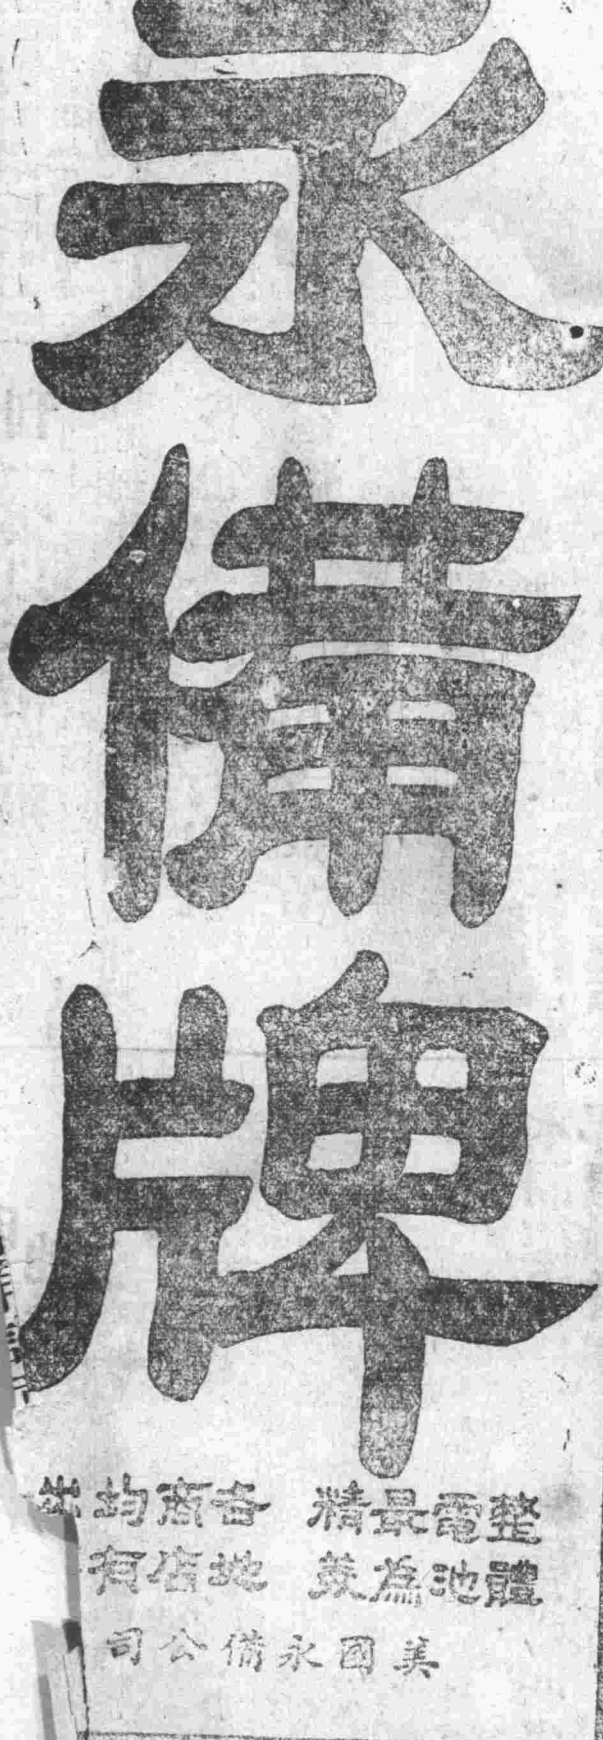 永備牌
整體電池最為精美
各地商店均有出
美國永備公司